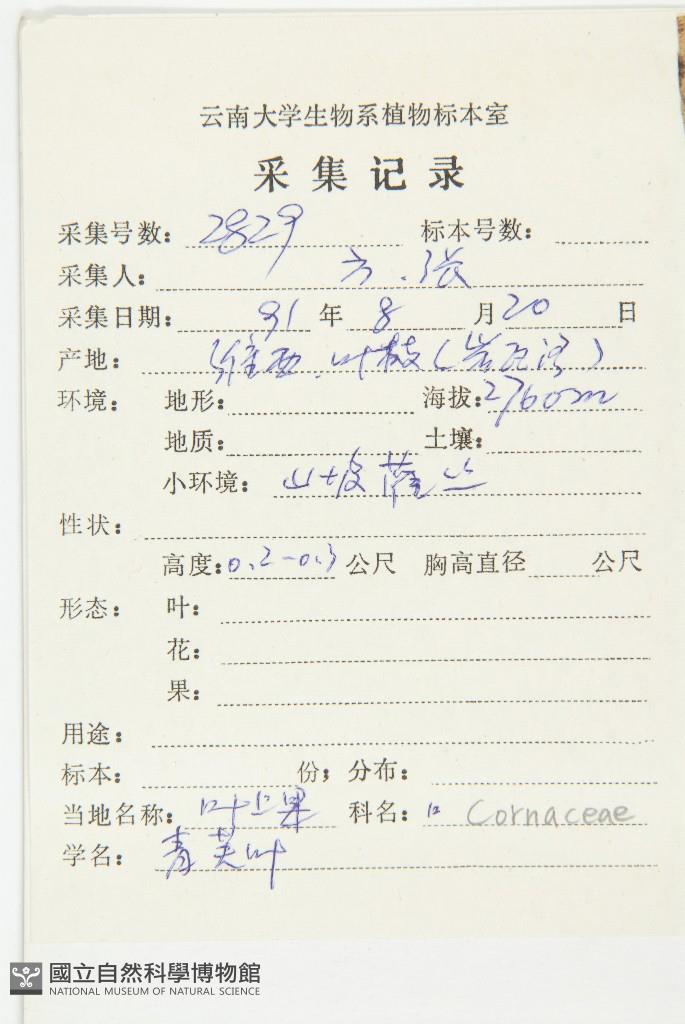 云南大学生物系植物标本室
采集记录
采集号数: 2829 标本号数:
采集人: 方.张
采集日期: 91 年 8 月 20 日
产地: 维西.叶枝(岩瓦湾)
环境: 地形: 海拔: 2760m
地质: 土壤:
小环境: 山坡灌丛
性状:
高度: 0.2-0.3 公尺 胸高直径 公尺
形态: 叶:
花:
果:
用途:
标本: 份; 分布:
当地名称: 叶上果 科名: Cornaceae
学名: 青荚叶
國立自然科學博物館
NATIONAL MUSEUM OF NATURAL SCIENCE